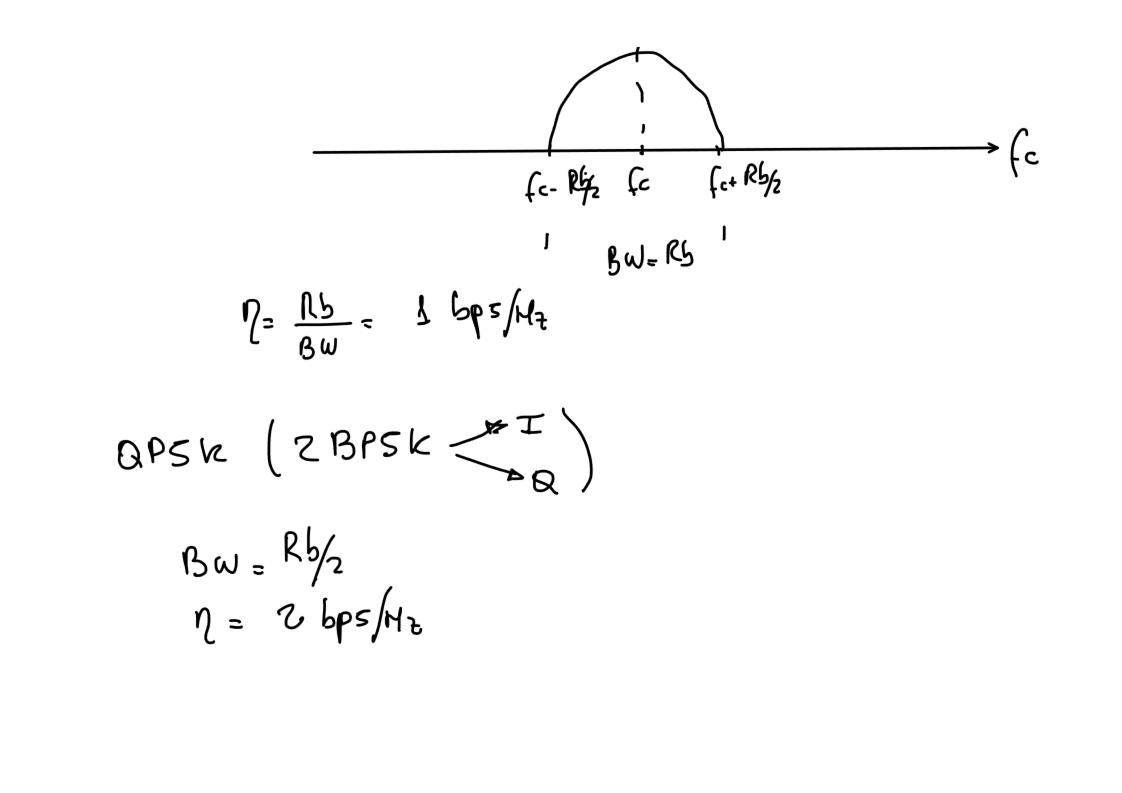 fc
fc- Rb/2 fc fc+ Rb/2
BW= Rb
η= Rb/BW = 1 bps/Hz
QPSK ( 2 BPSK I Q )
BW = Rb/2
η = 2 bps/Hz